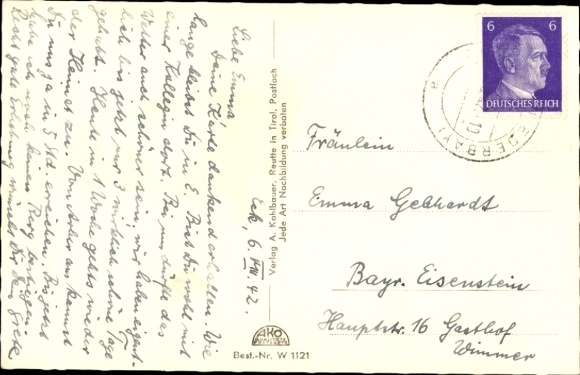 Eck, 6. VIII. 42.
Liebe Emma
Deine Karte dankend erhalten. Wie
lange bleibst Du in E. Bist Du wohl mit
einer Kollegin dort. Bei uns dürfte das
Wetter auch schöner sein, wir haben eigent-
lich bis jetzt nur 3 wirklich schöne Tage
gehabt. Heute in 1 Woche gehts wieder
der Heimat zu. Vom Arber aus kannst
Du uns ja in 5 Std. erreichen. Bis jetzt
habe ich noch keinen Berg bestiegen.
Recht gute Erholung wünscht Dir
Verlag A. Kohlbauer, Reutte in Tirol, Postfach
Jede Art Nachbildung verboten
AKO
Best.-Nr. W 1121
6 6
DEUTSCHES REICH
(NIEDERBAY)
a
Fräulein
Emma Gebhardt
Bayr. Eisenstein
Hauptstr. 16 Gasthof
Wimmer